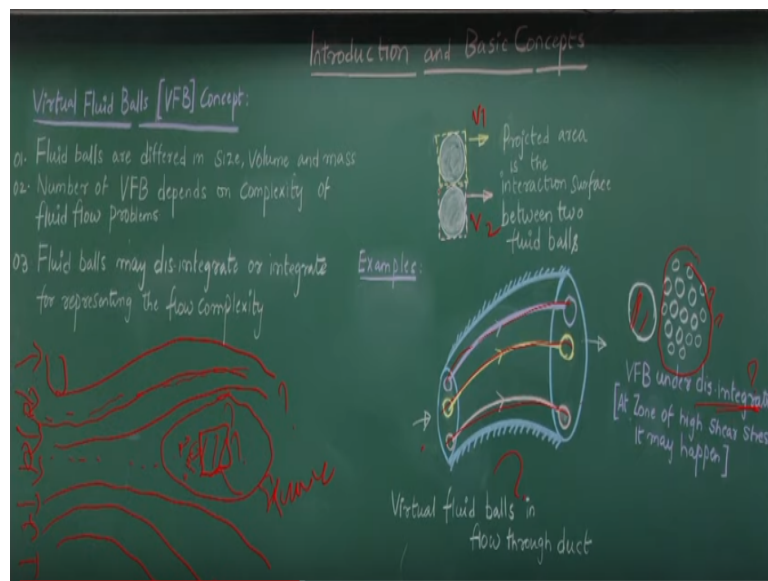 Introduction and Basic Concepts
Virtual Fluid Balls [VFB] Concept:
01. Fluid balls are differed in size, volume and mass
02. Number of VFB depends on complexity of
fluid flow problems
03 Fluid balls may dis-integrate or integrate
for representing the flow complexity
V1
V2
Projected area
is the
interaction surface
between two
fluid balls
Examples:
?
Virtual fluid balls in
flow through duct
?
VFB under dis-integrat
[At Zone of high shear stres
It may happen]
U
?